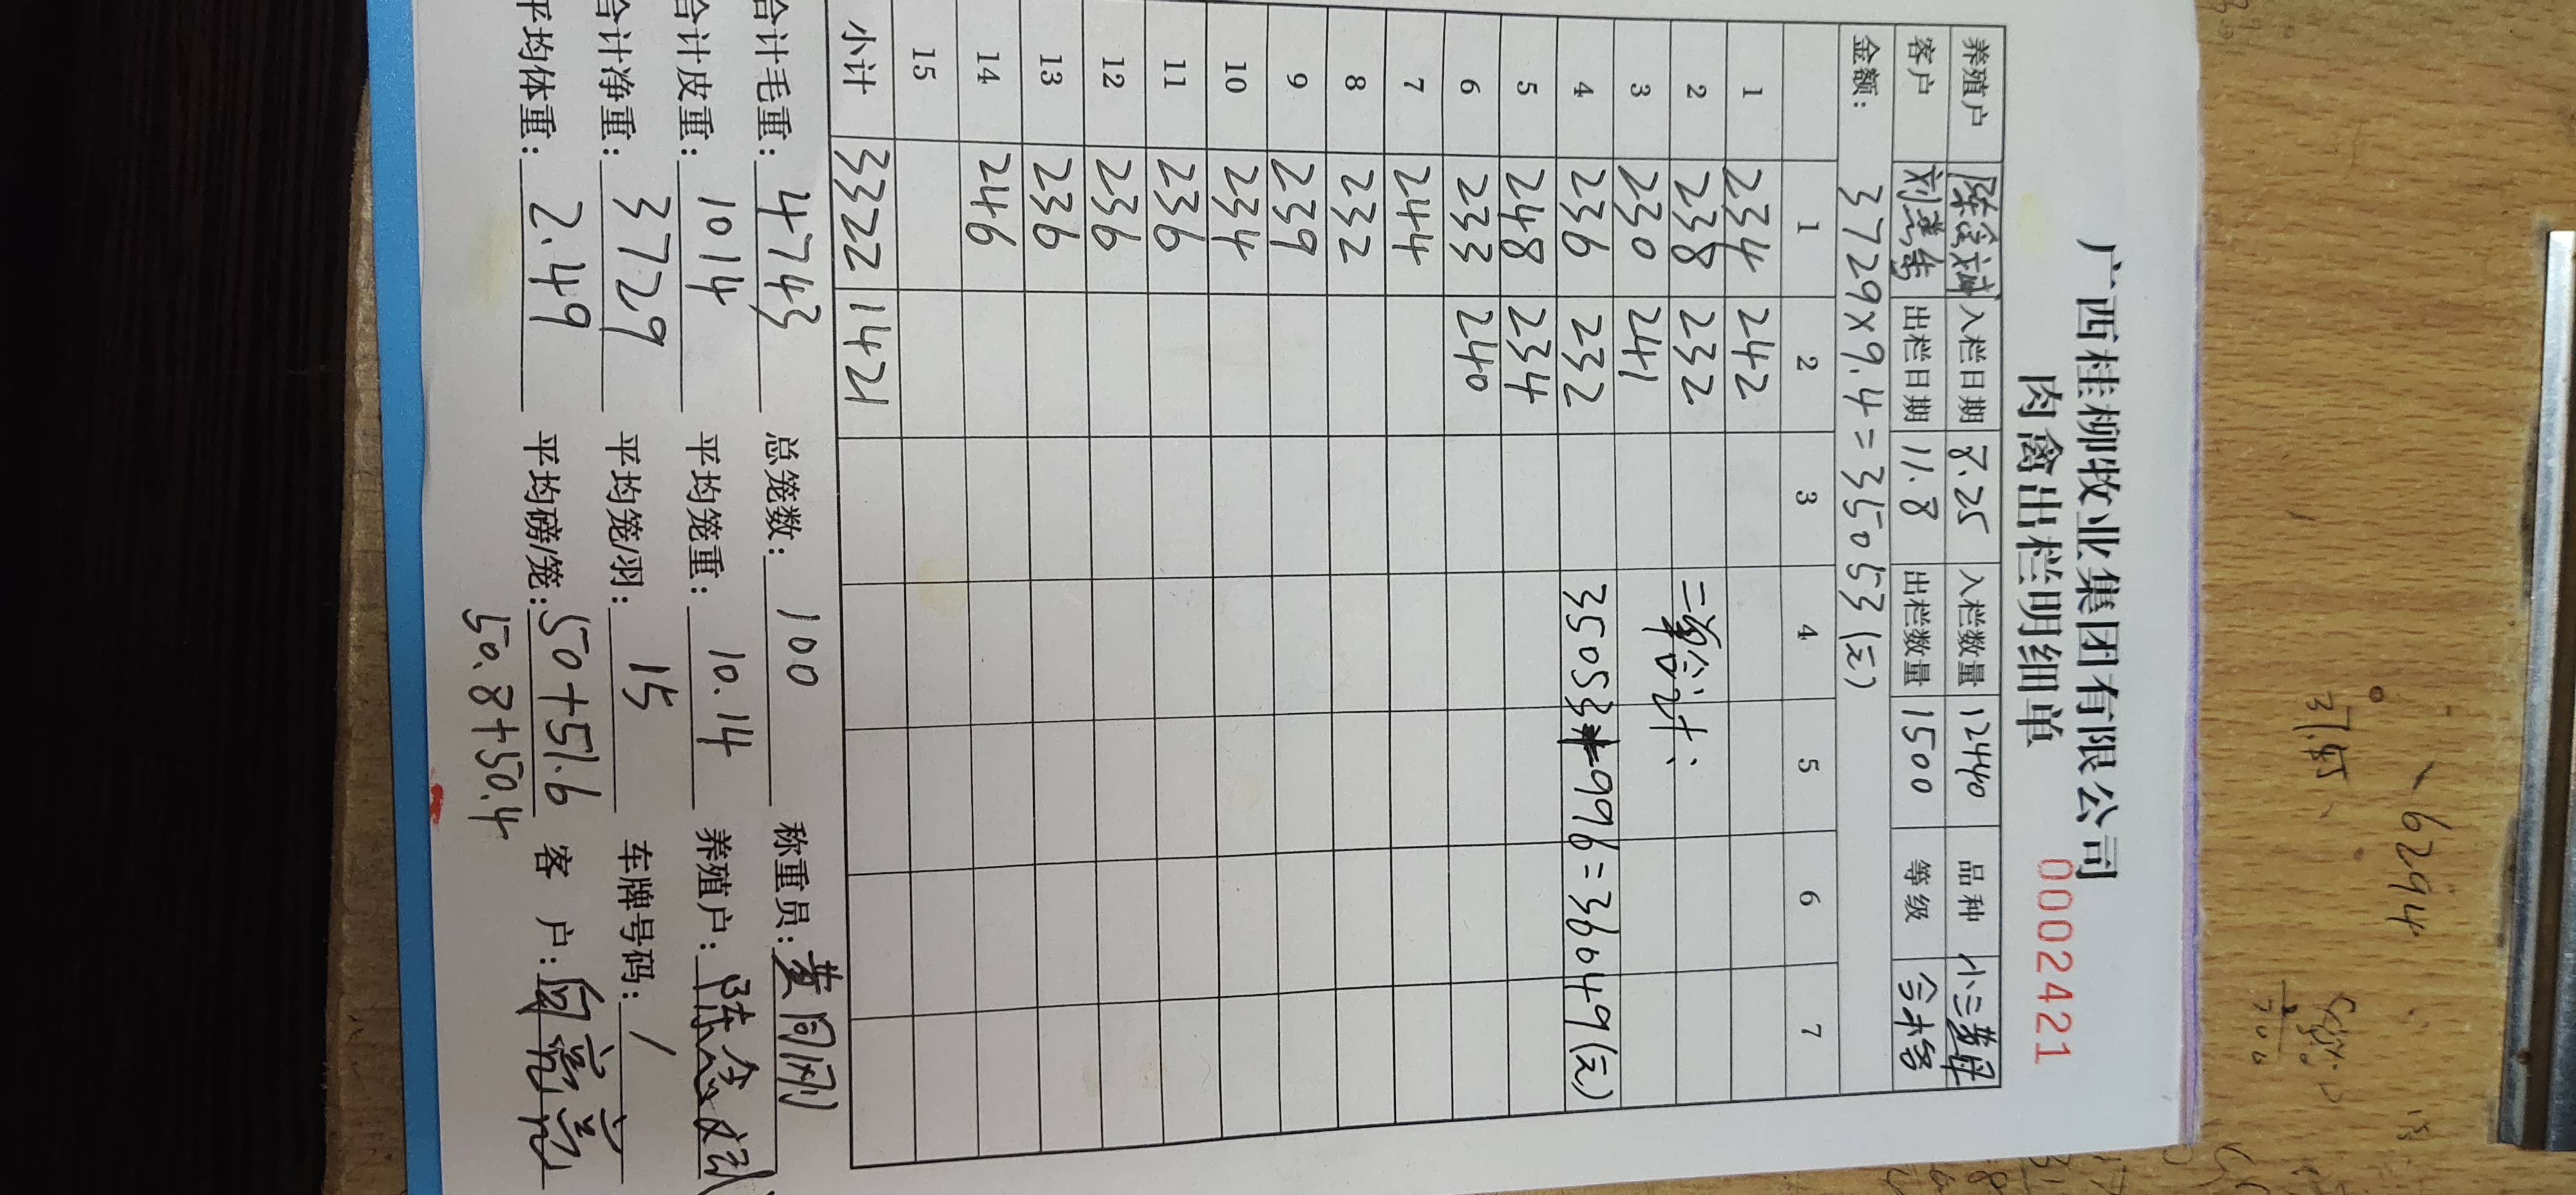 广西桂柳牧业集团有限公司
肉禽出栏明细单 0002421
养殖户 入栏日期 8.25 入栏数量 12440 品种 小三黄母
客户 出栏日期 11.8 出栏数量 1500 等级 合格
金额: 3729×9.4=35053(元)
1 2 3 4 5 6 7
1 234 242
2 238 232 二筆合计:
3 230 241
4 236 232 35053+996=36049(元)
5 248 234
6 233 240
7 244
8 232
9 239
10 234
11 236
12 236
13 236
14 246
15
小计 3322 1421
合计毛重: 4743 总笼数: 100 称重员: 黄同刚
合计皮重: 1014 平均笼重: 10.14 养殖户:
合计净重: 3729 平均笼/羽: 15 车牌号码: /
平均体重: 2.49 平均磅/笼: 50+51.6 客户:
50.8+50.4
6294